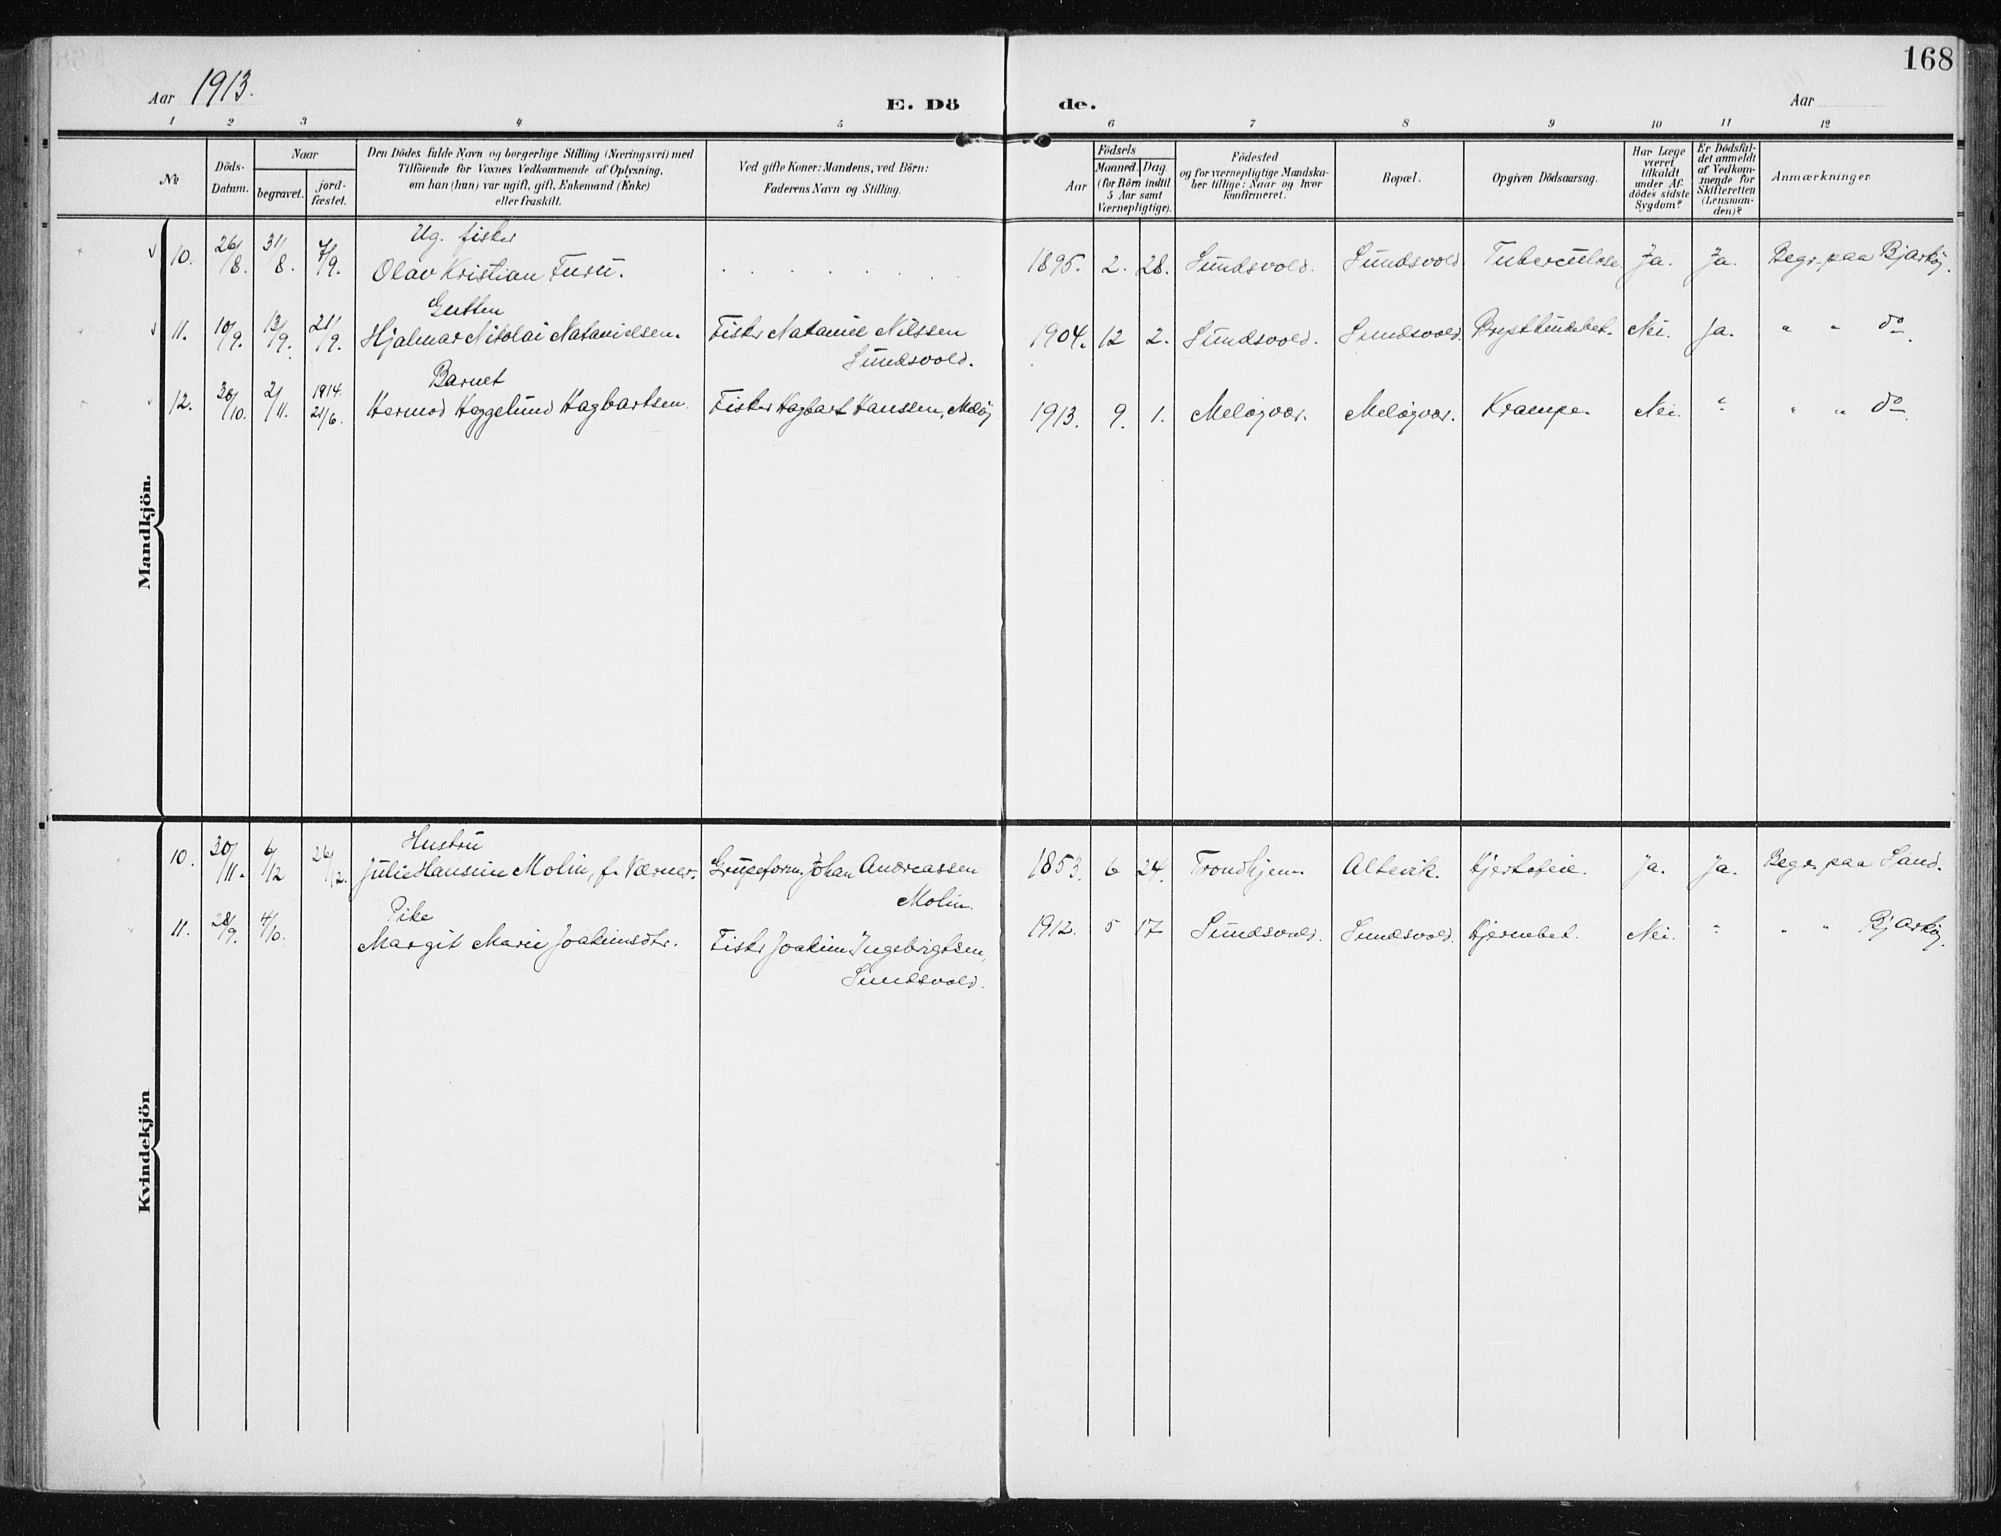 168
Aar 1913.
E. Dö de.
Aar
1 2 3 4 5 6 7 8 9 10 11 12
№
Döds-
Datum.
Naar
begravet.
jord-
fæstet.
Den Dödes fulde Navn og borgerlige Stilling (Næringsvei) med
Tilföiende for Voxnes Vedkommende af Oplysning,
om han (hun) var ugift, gift, Enkemand (Enke)
eller fraskilt.
Ved gifte Koner: Mandens, ved Börn:
Faderens Navn og Stilling.
Födsels
Aar
Maaned.
Dag.
(for Börn indtil
5 Aar samt
Værnepligtige).
Födested
og for værnepligtige Mandska-
ber tillige: Naar og hvor
Konfirmeret.
Bopæl.
Opgiven Dödsaarsag.
Har Læge
været
tilkaldt
under Af-
dödes sidste
Sygdom?
Er Dödsfal-
det anmeldt
af Vedkom-
mende for
Skifteretten
(Lensman-
den)?
Anmærkninger
Mandkjön.
Ug. fisker
10. 26/8. 31/8. 7/9. Olav Kristian Furu. 1895. 2. 28. Sundsvold. Sundsvold. Tuberculose. Ja. Ja. Begr. paa Bjarköy.
Gutten
11. 10/9. 13/9. 21/9. Hjalmar Nikolai Natanielsen. Fisker Nataniel Nilssen 1904. 12 2. Sundsvold. Sundsvold. Brysthindebet. Nei. Ja. " " do.
Sundsvold.
Barnet
12. 30/10. 2/11. 1914. 21/6. Hermod Heggelund Hagbartsen. Fisker Hagbart Hanssen, Meløy 1913. 9. 1. Meløyvær. Meløyvær. Krampe. Nei. " " " do.
Kvindekjön
Hustru
10. 30/11. 6/12 26/12. Julie Hansine Molin, f. Værner. Grubeform. Johan Andreassen 1853. 6 24. Trondhjem. Altevik. Hjertefeil. Ja. Ja. Begr. paa Sand.
Molin.
Pike
11. 28/9. 4/10. Margit Marie Joakimsdtr. Fisker Joakim Ingebrigtsen, 1912. 5 17 Sundsvold. Sundsvold. Hjernebet. Nei. " " " Bjarköy.
Sundsvold.